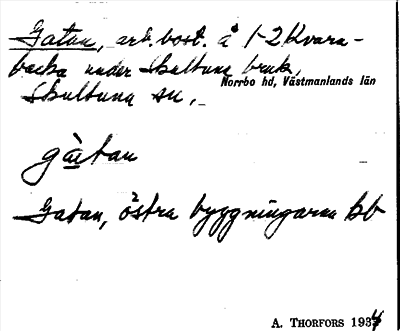 Gatan, arb.bost. å 1-2 Kvarn-
backa under Skultuna bruk,
Norrbo hd, Västmanlands län
Skultuna sn,
gàtan
Gatan, östra byggningarna bb
A. THORFORS 1934